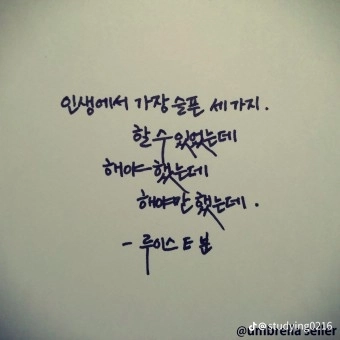 인생에서 가장 슬픈 세 가지.
할 수 있었는데
해야 했는데
해야만 했는데.
- 루이스 E 분
@studying0216
@umbrella seller